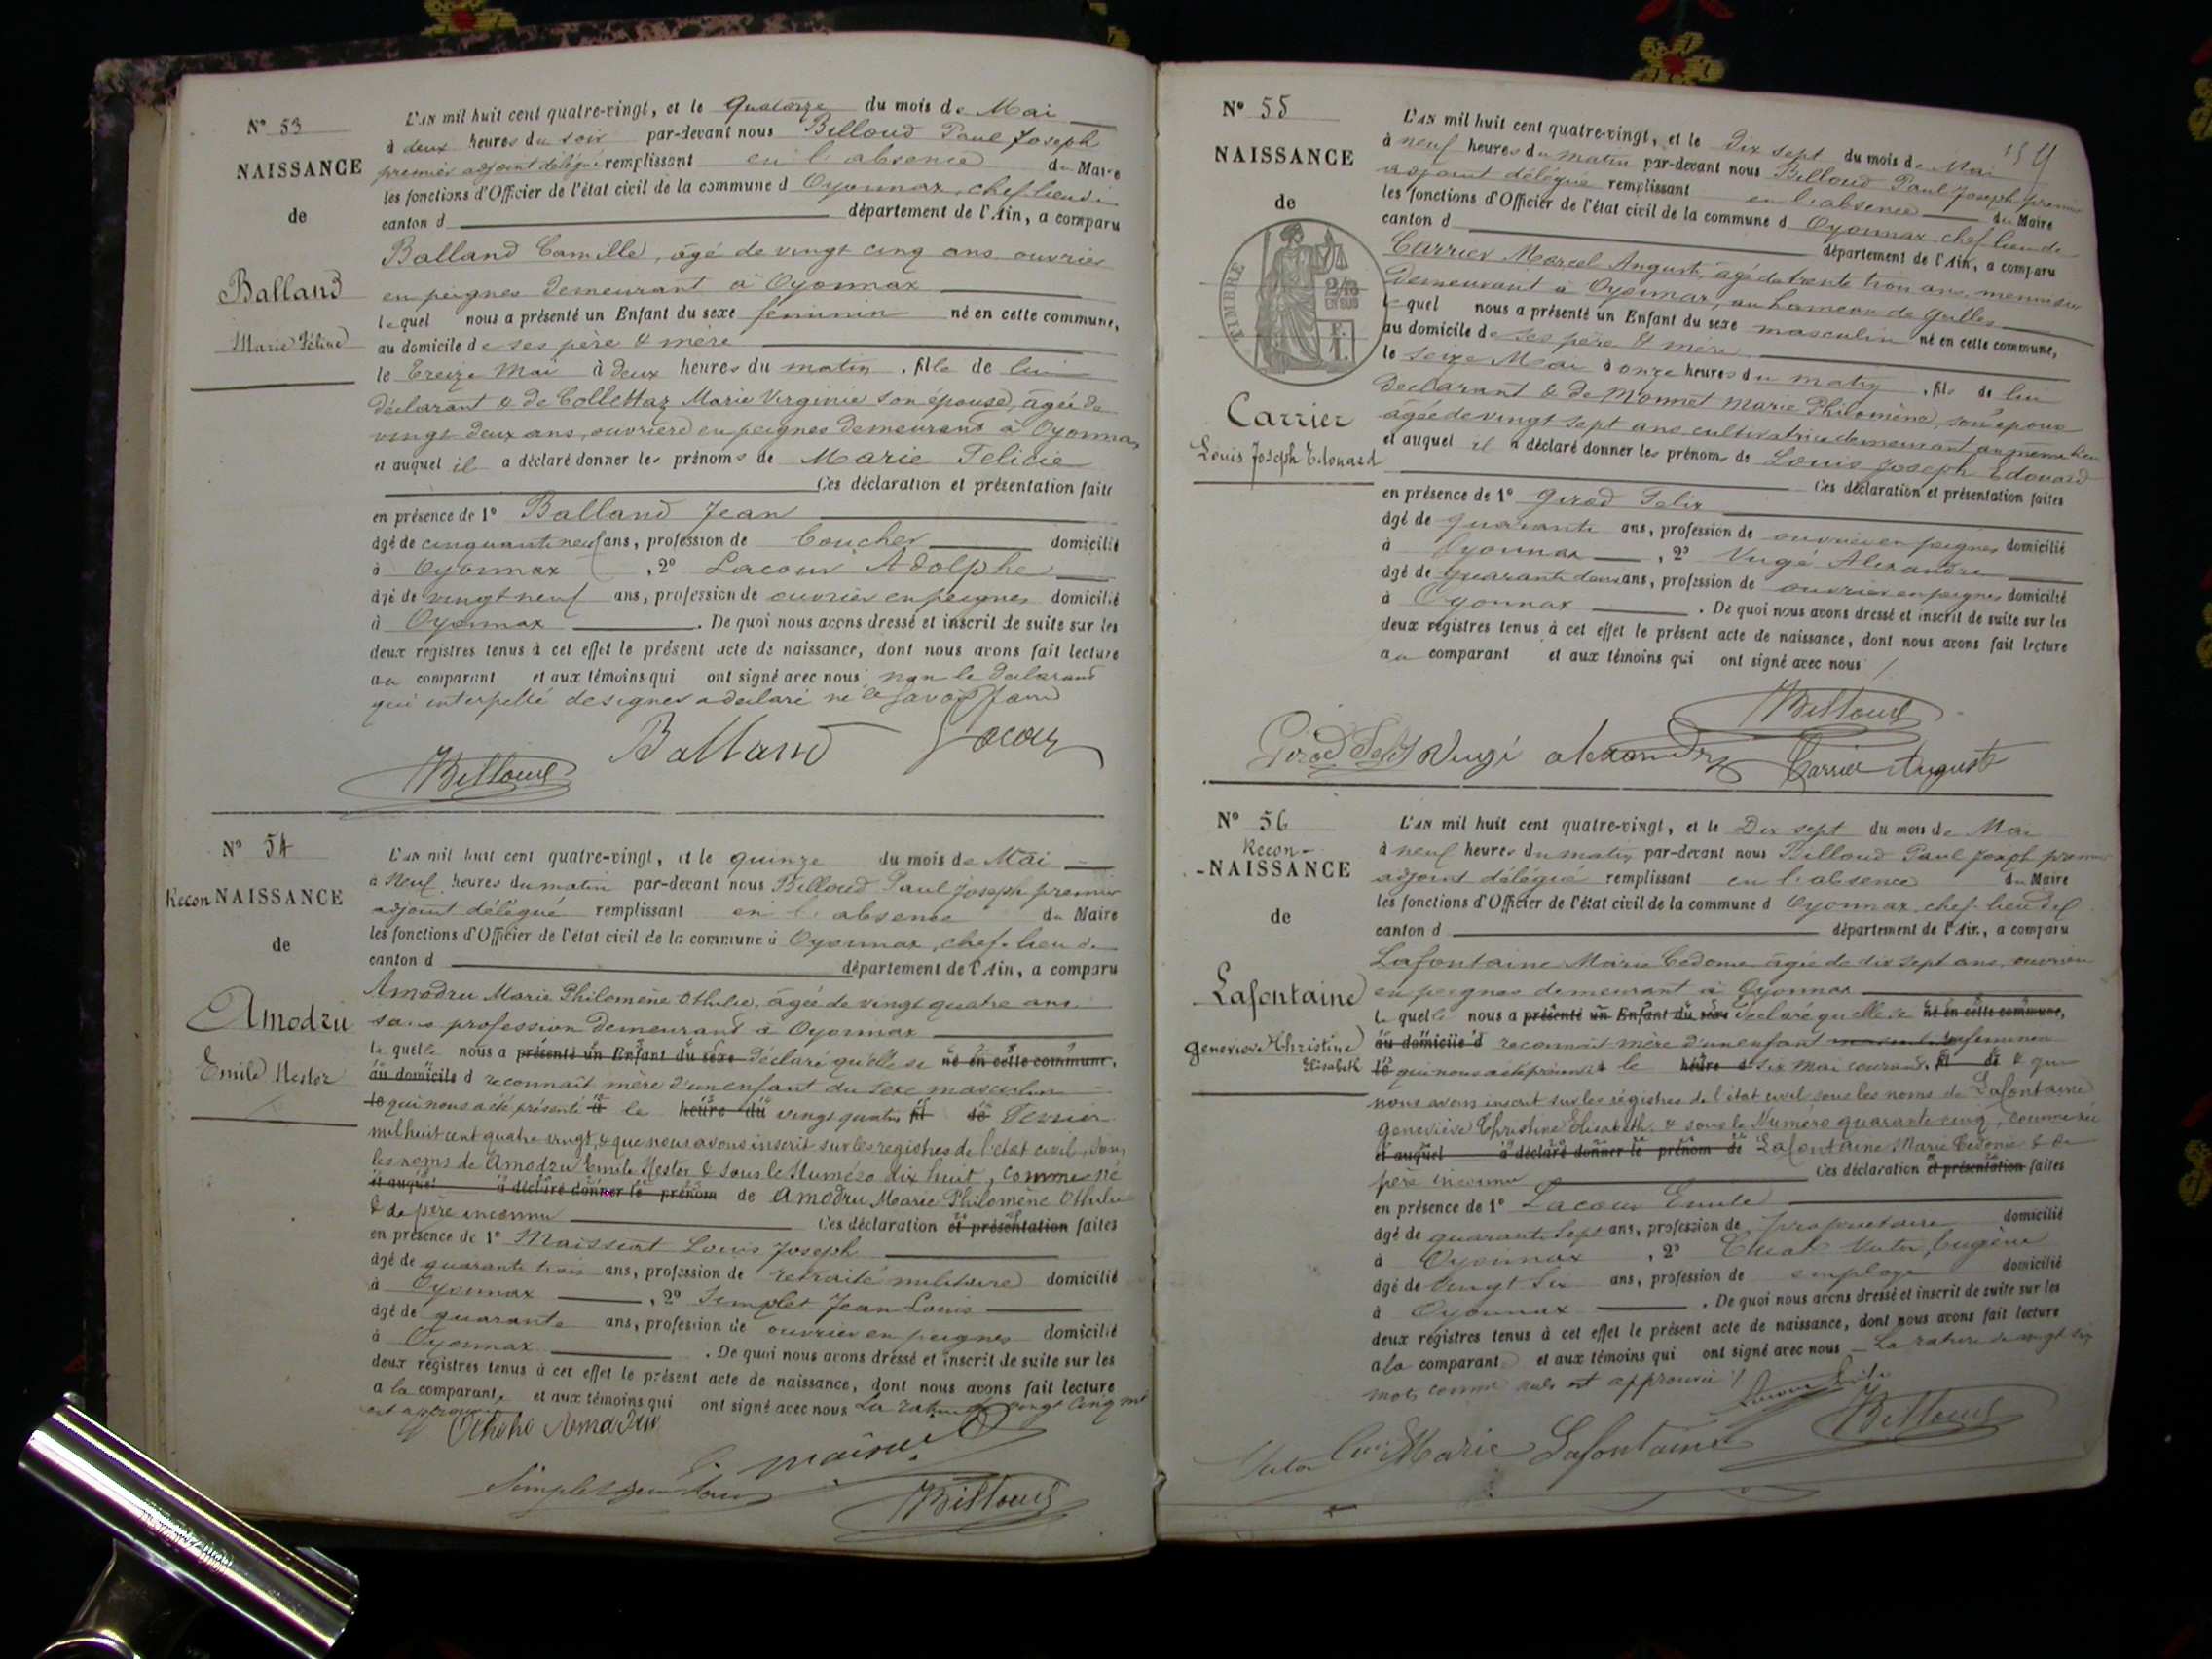 N° 53
NAISSANCE
de
Balland
Marie Félicie
L'AN mil huit cent quatre-vingt, et le quatorze du mois de Mai
à deux heures du soir par-devant nous Billoud Paul Joseph
premier adjoint délégué remplissant en l'absence du Maire
les fonctions d'Officier de l'état civil de la commune d Oyonnax, chef lieu de
canton d département de l'Ain, a comparu
Balland Camille, âgé de vingt cinq ans ouvrier
en peignes demeurant à Oyonnax
lequel nous a présenté un Enfant du sexe feminin né en cette commune,
au domicile de ses père & mère
le treize Mai à deux heures du matin, fille de lui
déclarant & de Collettaz Marie Virginie son épouse, âgée de
vingt deux ans, ouvrière en peignes demeurant à Oyonnax
et auquel il a déclaré donner les prénoms de Marie Felicie
Ces déclaration et présentation faites
en présence de 1° Balland Jean
âgé de cinquante neuf ans, profession de domicilié
à Oyonnax, 2° Lacour Adolphe
âgé de vingt neuf ans, profession de ouvrier en peignes domicilié
à Oyonnax. De quoi nous avons dressé et inscrit de suite sur les
deux registres tenus à cet effet le présent acte de naissance, dont nous avons fait lecture
au comparant et aux témoins qui ont signé avec nous non le déclarant
qui interpellé de signer a déclaré ne le savoir faire
Billoud Balland Lacour
N° 54
Recon NAISSANCE
de
Amodru
Emile Nestor
L'AN mil huit cent quatre-vingt, et le quinze du mois de Mai
à neuf heures du matin par-devant nous Billoud Paul Joseph premier
adjoint délégué remplissant en l'absence du Maire
les fonctions d'Officier de l'état civil de la commune d Oyonnax, chef-lieu de
canton d département de l'Ain, a comparu
Amodru Marie Philomène Othilie, âgée de vingt quatre ans
sans profession demeurant à Oyonnax
laquelle nous a présenté un Enfant du sexe déclaré qu'elle se né en cette commune,
au domicile d reconnaît mère d'un enfant du sexe masculin
le qui nous a été présenté à le heure du vingt quatre fil de Fevrier
mil huit cent quatre vingt & que nous avons inscrit sur les registres de l'état civil, sous
les noms de Amodru Emile Nestor & sous le Numéro dix huit, comme né
et auquel a déclaré donner le prénom de Amodru Marie Philomène Othilie
& de père inconnu Ces déclaration et présentation faites
en présence de 1° Maissiat Louis Joseph
âgé de quarante trois ans, profession de retraité militaire domicilié
à Oyonnax, 2° Simplet Jean Louis
âgé de quarante ans, profession de ouvrier en peignes domicilié
à Oyonnax. De quoi nous avons dressé et inscrit de suite sur les
deux registres tenus à cet effet le présent acte de naissance, dont nous avons fait lecture
a la comparante et aux témoins qui ont signé avec nous La rature de vingt cinq mots
est approuvée
Othilie Amodru
Simplet Jean Louis
Billoud
N° 55
NAISSANCE
de
TIMBRE
2/10 EN SUS
Carrier
Louis Joseph Edouard
L'AN mil huit cent quatre-vingt, et le Dix sept du mois de Mai
à neuf heures du matin par-devant nous Billoud Paul Joseph premier
adjoint délégué remplissant en l'absence du Maire
les fonctions d'Officier de l'état civil de la commune d Oyonnax chef lieu de
canton d département de l'Ain, a comparu
Carrier Marcel Auguste, âgé de trente trois ans, menuisier
demeurant à Oyonnax, au hameau de
lequel nous a présenté un Enfant du sexe masculin né en cette commune,
au domicile de ses père & mère
le seize Mai à onze heures du matin, fils de lui
déclarant & de Monnet Marie Philomène, son épouse
âgée de vingt sept ans cultivatrice demeurant au même lieu
et auquel il a déclaré donner les prénoms de Louis Joseph Edouard
Ces déclaration et présentation faites
en présence de 1° Girod Felix
âgé de quarante ans, profession de ouvrier en peignes domicilié
à Oyonnax, 2° Vugé Alexandre
âgé de quarante deux ans, profession de ouvrier en peignes domicilié
à Oyonnax. De quoi nous avons dressé et inscrit de suite sur les
deux registres tenus à cet effet le présent acte de naissance, dont nous avons fait lecture
au comparant et aux témoins qui ont signé avec nous
Billoud
Girod Felix Vugé alexandre Carrier Auguste
N° 56
Recon-
-NAISSANCE
de
Lafontaine
Geneviève Christine
Elisabeth
L'AN mil huit cent quatre-vingt, et le Dix sept du mois de Mai
à neuf heures du matin par-devant nous Billoud Paul Joseph premier
adjoint délégué remplissant en l'absence du Maire
les fonctions d'Officier de l'état civil de la commune d Oyonnax, chef-lieu de
canton d département de l'Ain, a comparu
Lafontaine Marie Cedonie âgée de dix sept ans, ouvrière
en peignes demeurant à Oyonnax
laquelle nous a présenté un Enfant du sexe déclaré qu'elle se né en cette commune,
au domicile d reconnaît mère d'un enfant masculin feminin
le qui nous a été présenté le heure d six Mai courant, fil de & que
nous avons inscrit sur les régistres de l'état civil sous les noms de Lafontaine
Geneviève Christine Elisabeth, & sous le Numéro quarante cinq, comme née
et auquel a déclaré donner le prénom de Lafontaine Marie Cedonie & de
père inconnu Ces déclaration et présentation faites
en présence de 1° Lacour Emile
âgé de quarante sept ans, profession de propriétaire domicilié
à Oyonnax, 2° Victor Eugène
âgé de vingt six ans, profession de employé domicilié
à Oyonnax. De quoi nous avons dressé et inscrit de suite sur les
deux registres tenus à cet effet le présent acte de naissance, dont nous avons fait lecture
a la comparante et aux témoins qui ont signé avec nous La rature de vingt six
mots comme nuls est approuvée
Lacour Emile
Victor Marie Lafontaine Billoud